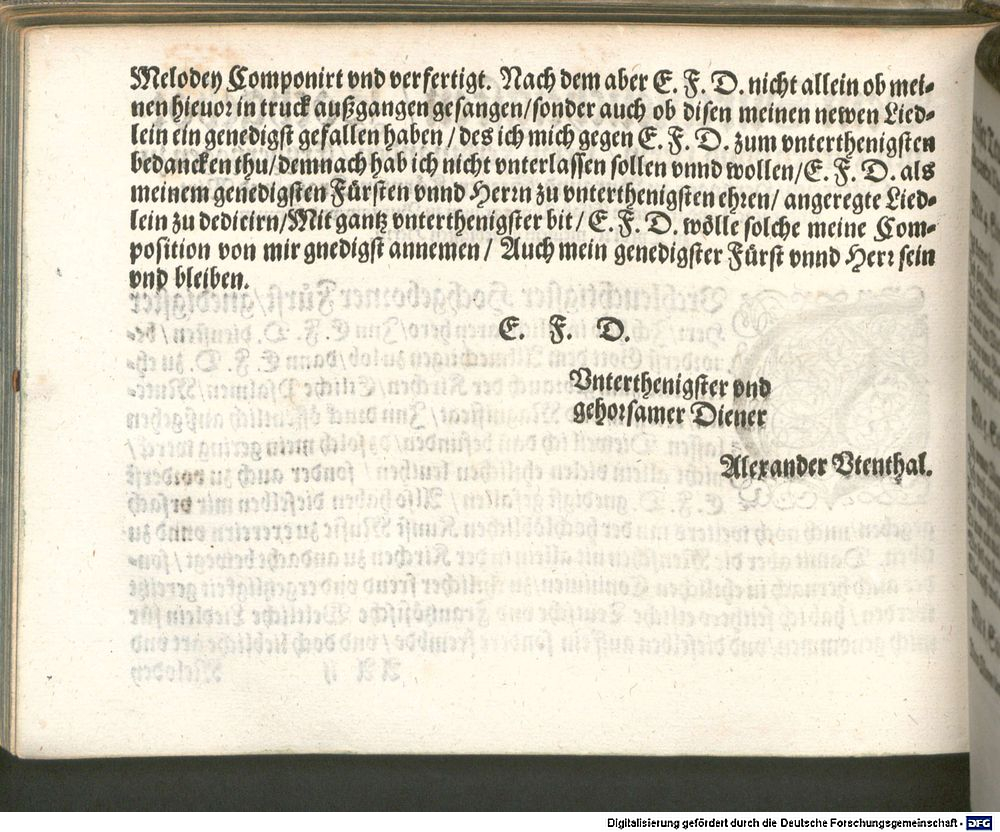 Melodey Componirt vnd verfertigt. Nach dem aber E. F. D. nicht allein ob mei-
nen hieuor in truck außgangen gesangen/sonder auch ob disen meinen newen Lied-
lein ein genedigst gefallen haben / des ich mich gegen E. F. D. zum vnterthenigsten
bedancken thu/demnach hab ich nicht vnterlassen sollen vnnd wollen/E. F. D. als
meinem genedigsten Fürsten vnnd Herrn zu vnterthenigsten ehren/ angeregte Lied-
lein zu dedicirn/Mit gantz vnterthenigster bit/ E. F. D. wölle solche meine Com-
position von mir gnedigst annemen / Auch mein genedigster Fürst vnnd Herr sein
vnd bleiben.
E. F. D.
Vnterthenigster vnd
gehorsamer Diener
Alexander Vtenthal.
Digitalisierung gefördert durch die Deutsche Forschungsgemeinschaft - DFG